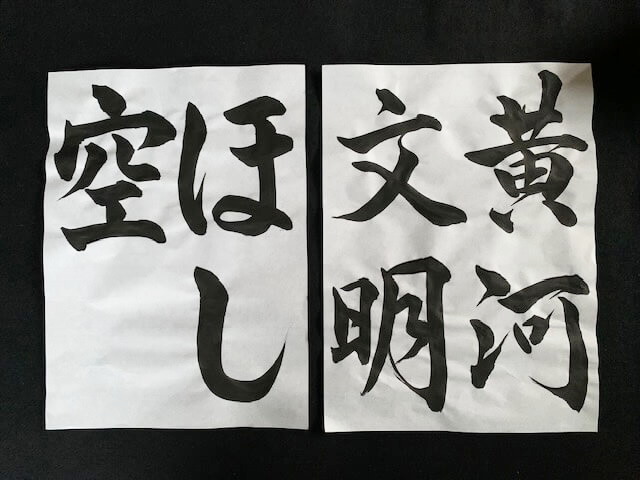 黄河
文明
ほし
空